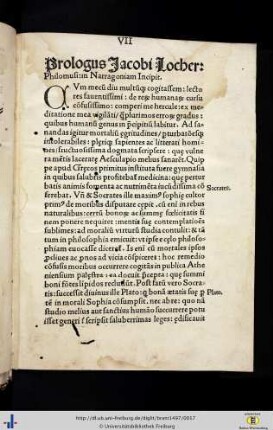 VII
Prologus Jacobi Locher:
Philomusi: in Narragoniam Incipit.
CVm mecū diu multūq; cogitassem: lecto
res fauentissimi: de rerū humanarū cursu
cōfusissimo: comperi me hercule: ex me
ditatione mea vigilāti
quibus humanū genus in p̄cipitiū labitur. Ad sa
nandas igitur mortaliū egritudines/ pturbatōesq;
intolerabiles: sapientes ac litterati homi
nes fructuosissima dogmata scripsere: que vulne
ra mētis lacerate Aesculapio melius sanarēt. Quip
pe apud Grecos primitus instituta fuere gymnasia
in quibus salubris medicina: que pertur
batis animis fomenta ac nutrimēta iucūdissima
ferebat. Vn̄ & Socrates ille maximꝰ sophię cultor
Socrates.
de moribus disputare cepit: cū eni in rebus
naturalibus: terrā bonoꝝ ac summę fœlicitatis fi
nem ponere nequiret: mentis sue contemplatiōes
sublimes: ad moraliū virtutū studia contulit: & tā
tum in philosophia emicuit: vt ipse cęlo philoso
phiam euocasse diceret. Is eni cū mortales ipsos
hoc remedio
cōfusis moribus occurrere cogitās in publica Athe
niensium palęstra: ea docuit p̄cepta: que summi
boni fōtes lipidos recludūt. Post fatū vero Socra
tis: successit diuinus ille Plato: bonā ætatis suę p
Plato.
tē in morali Sophia cōsumpsit, nec abre: quo nā
studio melius aut sanctius humāo succurrere potu
isset generi? scripsit saluberrimas leges: edificauit
http://dl.ub.uni-freiburg.de/diglit/brant1497/0017
© Universitätsbibliothek Freiburg